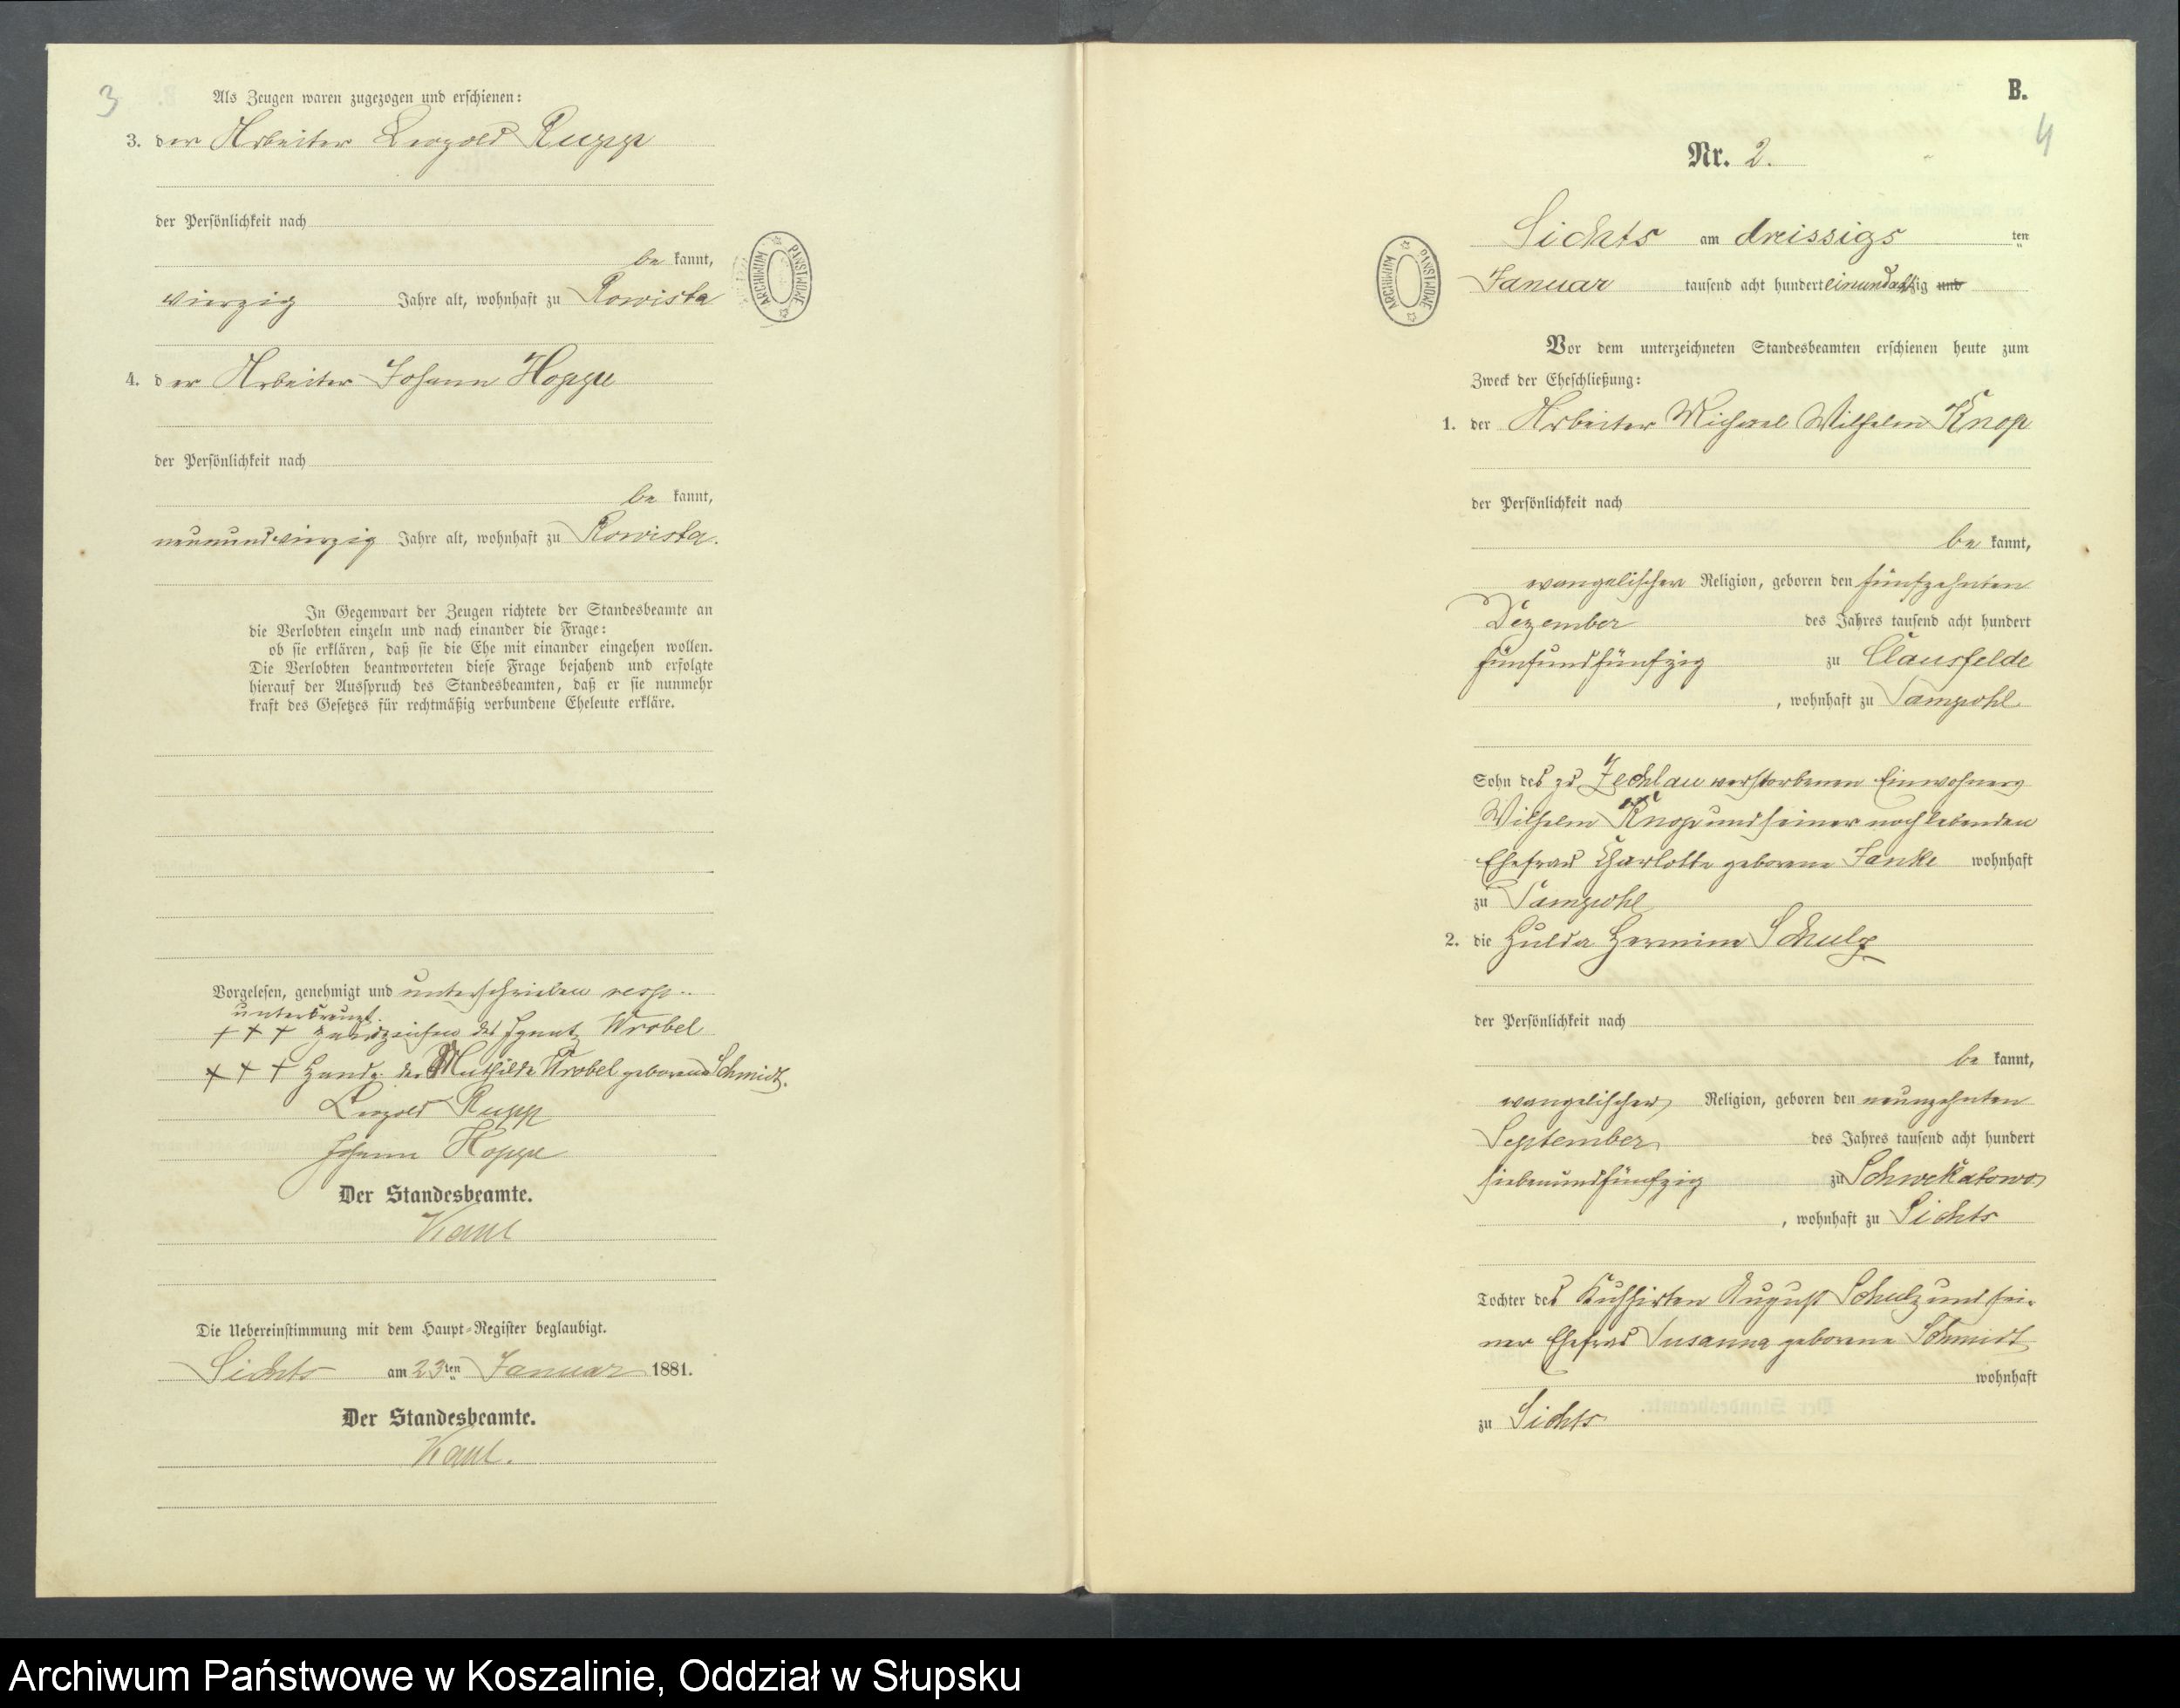 3
Als Zeugen waren zugezogen und erschienen:
3. der Arbeiter Leopold Rupp
der Persönlichkeit nach
be kannt,
vierzig Jahre alt, wohnhaft zu Rowista
4. der Arbeiter Johann Hoppe
der Persönlichkeit nach
be kannt,
neunundvierzig Jahre alt, wohnhaft zu Rowista.
In Gegenwart der Zeugen richtete der Standesbeamte an
die Verlobten einzeln und nach einander die Frage:
ob sie erklären, daß sie die Ehe mit einander eingehen wollen.
Die Verlobten beantworteten diese Frage bejahend und erfolgte
hierauf der Ausspruch des Standesbeamten, daß er sie nunmehr
kraft des Gesetzes für rechtmäßig verbundene Eheleute erkläre.
Vorgelesen, genehmigt und unterschrieben resp.
unterkreuzt.
+++ Handzeichen des Ignatz Wrobel
+++ Handz. der Mathilde Wrobel geborene Schmidt.
Leopold Rupp
Johann Hoppe
Der Standesbeamte.
Die Uebereinstimmung mit dem Haupt-Register beglaubigt.
Sichts am 23ten Januar 1881.
Der Standesbeamte.
ARCHIWUM PAŃSTWOWE
B.
4
Nr. 2.
Sichts am dreissigs ten
Januar tausend acht hundert einundachtzig und
ARCHIWUM PAŃSTWOWE
Vor dem unterzeichneten Standesbeamten erschienen heute zum
Zweck der Eheschließung:
1. der Arbeiter Michael Wilhelm Knop
der Persönlichkeit nach
be kannt,
evangelischer Religion, geboren den fünfzehnten
Dezember des Jahres tausend acht hundert
fünfundfünfzig zu Clausfelde
, wohnhaft zu Pampohl
Sohn des zu Zechlau verstorbenen Einwohners
Wilhelm Knop und seiner noch lebenden
Ehefrau Charlotte geborene Janke wohnhaft
zu Pampohl
2. die Hulda Hermine Schulz
der Persönlichkeit nach
be kannt,
evangelischer Religion, geboren den neunzehnten
September des Jahres tausend acht hundert
siebenundfünfzig zu Schwekatowo
, wohnhaft zu Sichts
Tochter des Kuhhirten August Schulz und sei-
ner Ehefrau Susanna geborene Schmidt
wohnhaft
zu Sichts
Archiwum Państwowe w Koszalinie, Oddział w Słupsku